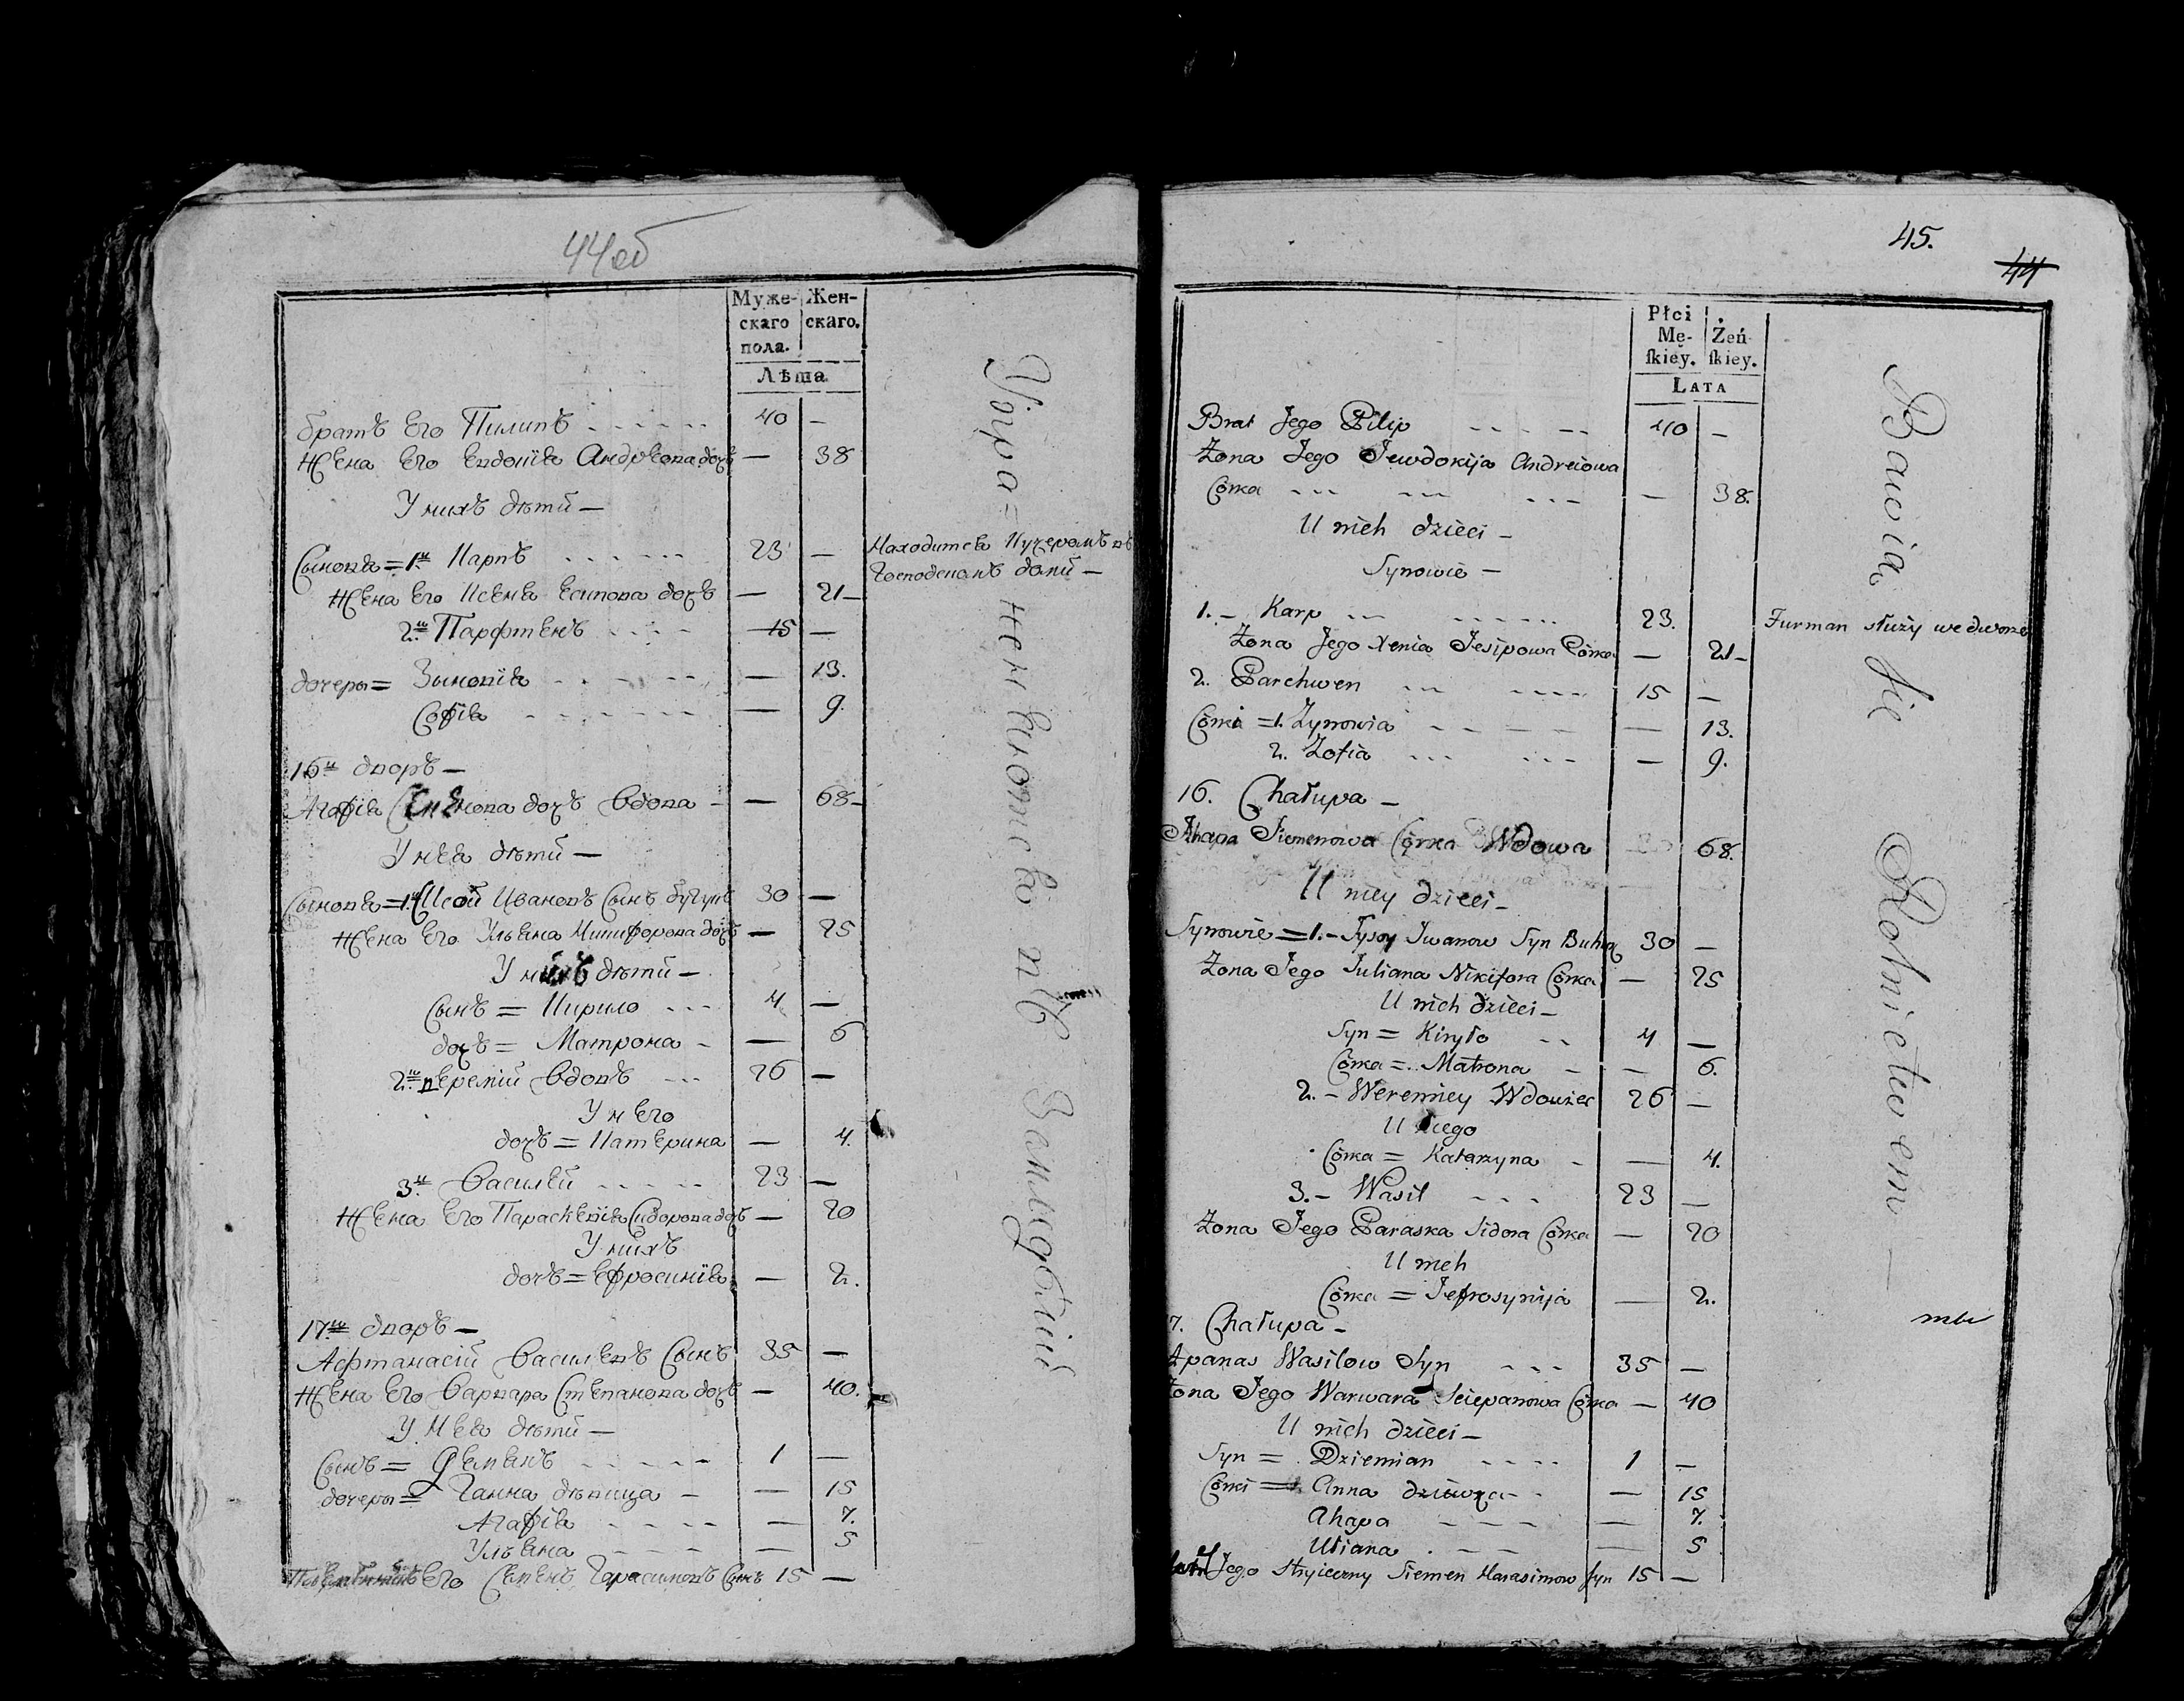 44об
Муже- Жен-
скаго скаго.
пола.
Лѣта
братъ Его Пилипъ 40 —
Жена Его Евдокія Андрѣева дочь — 38
У нихъ дѣти —
Сыновья = 1й Карпъ 23 — Находится Кучеромъ въ
Господскомъ дворѣ —
Жена Его Ксеня Есипова дочь — 21 —
2й Парфтенъ 15 —
дочеры = Зыновія — 13.
Софія — 9.
16й дворъ —
Агафія Семенова дочь вдова — 68 —
У нея дѣти —
Сыновья = 1й Исой Ивановъ Сынъ 30 —
Жена Его Ульяна Никифорова дочь — 25
У нихъ дѣти —
Сынъ = Кирило 4 —
дочь = Матрона — 6
2й Веремій вдовъ 26 —
У нЕго
дочь = Катерина — 4.
3й Василій 23 —
Жена Его Параскевія Сидорова дочь — 20
У нихъ
дочь = Ефросинія — 2.
17й дворъ —
Афтанасій Васильевъ Сынъ 35 —
Жена Его Варвара Степанова дочь — 40.
У Нея дѣти —
Сынъ = Деменъ 1 —
дочеры = Ганна дѣвица — 15
Агафія — 7.
Ульяна — 5
Его Семенъ Гарасимовъ Сынъ 15 —
45.
44
Płci
Mę- Żeń-
ſkiey. ſkiey.
Lata
Brat Jego Pilip 40 —
Żona Jego Jewdokija Andreiowa
Córka — 38.
U nich dzieci —
Synowie —
1. — Karp 23. Furman służy we dworze
Żona Jego Xenia Jesipowa Córka — 21 —
2. Parchwen 15 —
Córki = 1. Zynowia — 13.
2. Zofia — 9.
16. Chałupa —
Ahapa Siemenowa Córka Wdowa 68.
U niey dzieci —
Synowie = 1. — Sysoy Iwanow Syn 30 —
Żona Jego Juliana Nikifora Córka — 25
U nich dzieci —
Syn = Kiryło 4 —
Córka = Matrona — 6.
2. — Weremiey Wdowiec 26 —
U niego
Córka = Katarzyna — 4.
3. — Wasil 23 —
Żona Jego Paraska Sidora Córka — 20
U nich
Córka = Jefrosynija — 2.
7. Chałupa —
Apanas Wasilow Syn 35 —
Żona Jego Warwara Sciepanowa Córka — 40
U nich dzieci —
Syn = Dziemian 1 —
Córki = Anna dziewka — 15
Ahapa — 7.
Uliana — 5
Jego Stryieczny Siemen Harasimow syn 15 —
Bawią się Rolnictwem —